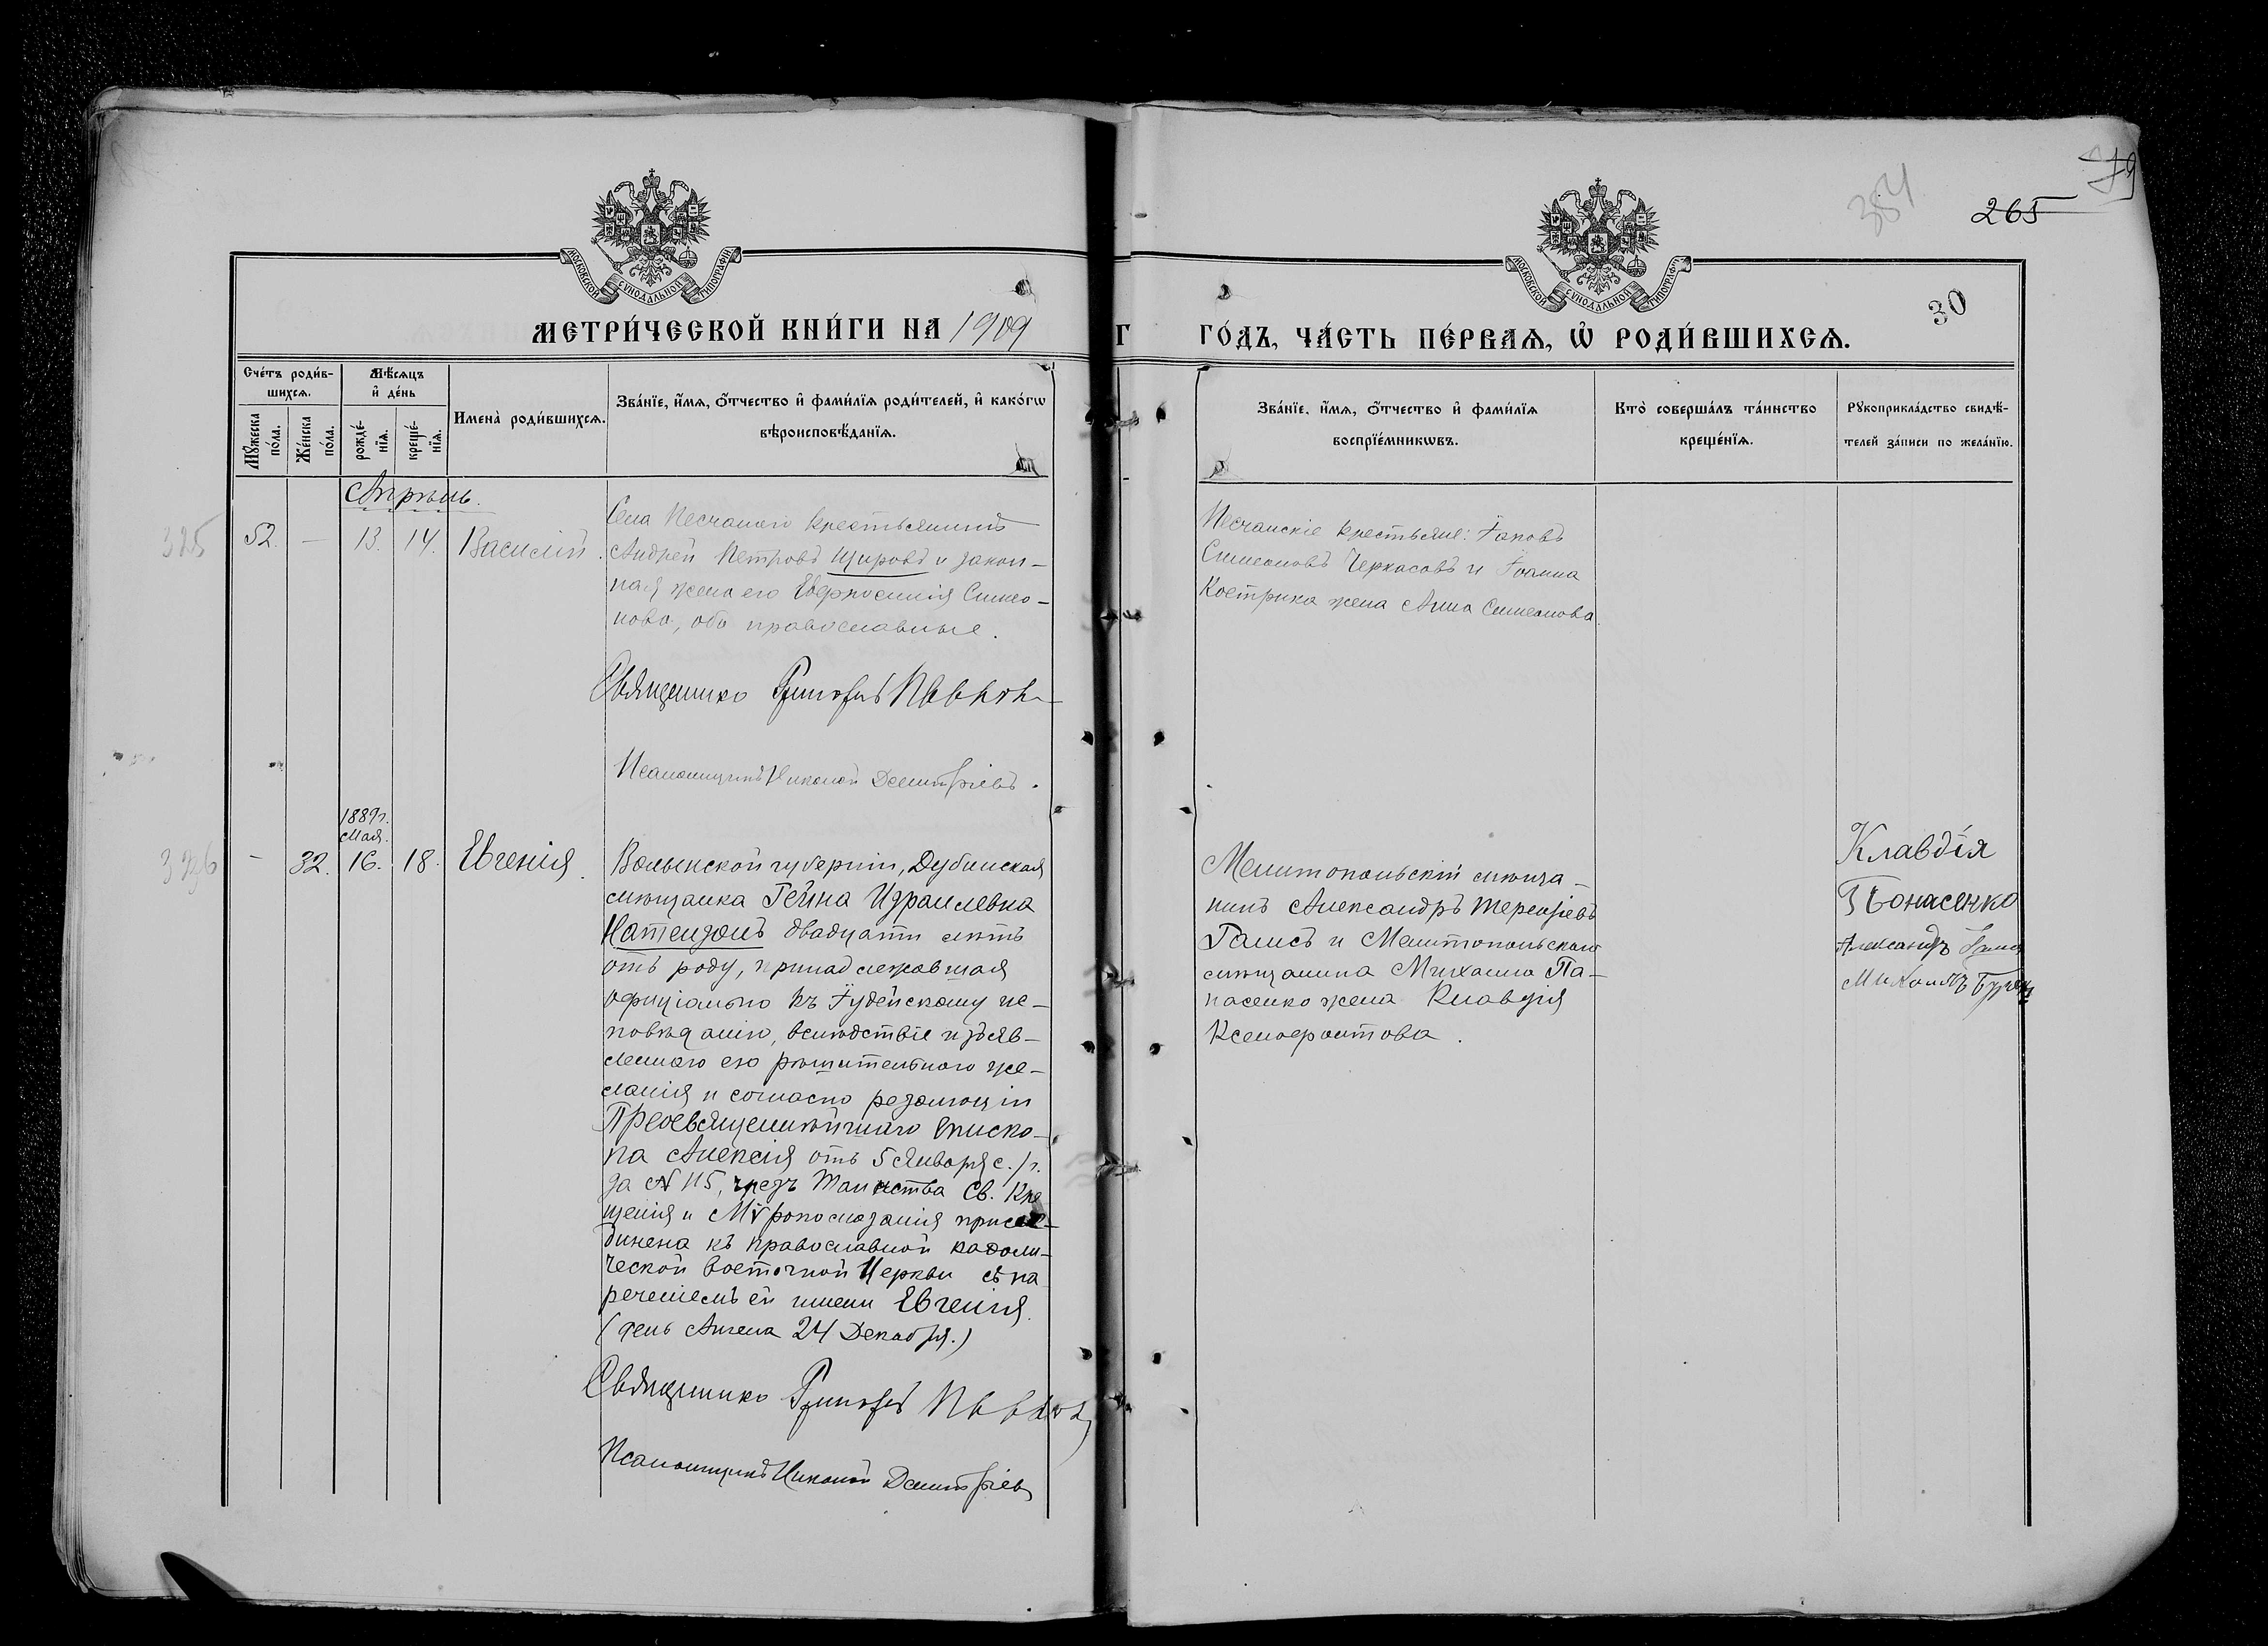 354
79
265
МОСКОВСКОЙ СѴНОДАЛЬНОЙ ТИПОГРАФІИ
МОСКОВСКОЙ СѴНОДАЛЬНОЙ ТИПОГРАФІИ
30
МЕТРИ́ЧЕСКОЙ КНИ́ГИ НА 1909 Г
ГО́ДЪ, ЧА́СТЬ ПЕ́РВАѦ, Ѡ҆ РОДИ́ВШИХСѦ.
Сче́тъ роди́в-
шихсѧ.
Мꙋ́жеска по́ла.
Же́нска по́ла.
Мѣ́сѧцъ
и҆ де́нь
рожде́-
нїѧ.
креще́-
нїѧ.
Имена̀ роди́вшихсѧ.
Зва́нїе, и҆́мѧ, ѻ҆́тчество и҆ фами́лїѧ роди́телей, и҆ како́гѡ
вѣроисповѣ́данїѧ.
Зва́нїе, и҆́мѧ, ѻ҆́тчество и҆ фами́лїѧ
воспрїе́мникѡвъ.
Кто̀ соверша́лъ та́инство
креще́нїѧ.
Рꙋкоприкла́дство свидѣ́-
телей за́писи по жела́нїю.
Апрѣль.
325
52. — 13. 14. Василій.
Села Песчанаго крестьянинъ
Андрей Петровъ Щировъ и закон-
ная жена его Евфросинія Симео-
нова, оба православные.
Священникъ Григорій
Псаломщикъ Николай Димитріевъ.
Песчанскіе крестьяне: Іаковъ
Симеоновъ Черкасовъ и Іоанна
Кострика жена Анна Симеонова.
1889г.
Мая.
326
- 32. 16. 18. Евгенія.
Волынской губерніи, Дубинская
мѣщанка Гейна Израилевна
Натензонъ двадцати лѣтъ
отъ роду, принадлежавшая
офиціально къ Іудейскому ис-
повѣданію, вслѣдствіе изъяв-
леннаго ею рѣшительнаго же-
ланія и согласно резолюціи
Преосвященнѣйшаго Еписко-
па Алексія отъ 5 Января с./г.
за № 115, чрезъ Таинства Св. Кре
щенія и Мѵропомазанія присое-
динена къ православной каѳоли-
ческой Восточной Церкви съ на
реченіемъ ей имени Евгенія.
(день Ангела 24 Декабря.)
Священникъ Григорій
Псаломщикъ Николай Димитріевъ
Мелитопольскій мѣща-
нинъ Александръ Терентіевъ
Галисъ и Мелитопольскаго
мѣщанина Михаила Па-
насенко жена Клавдія
Ксенофонтова.
Клавдія
Понасенко
Александръ
Михаилъ